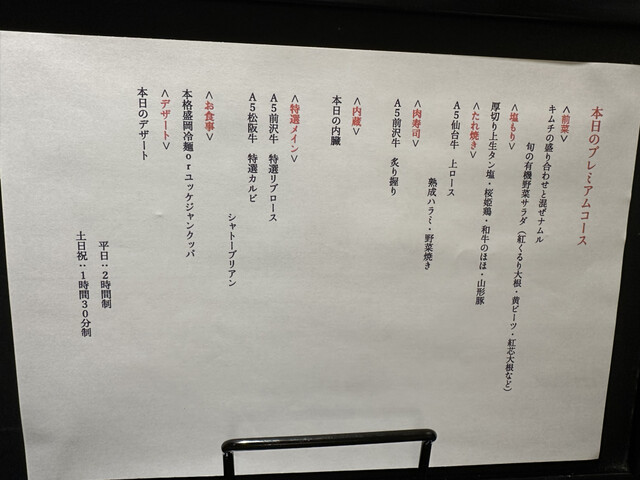 本日のプレミアムコース
＜前菜＞
キムチの盛り合わせと混ぜナムル
旬の有機野菜サラダ（紅くるり大根・黄ビーツ・紅芯大根など）
＜塩もり＞
厚切り上生タン塩・桜姫鶏・和牛のほほ・山形豚
＜たれ焼き＞
A５仙台牛　上ロース
熟成ハラミ・野菜焼き
＜肉寿司＞
A５前沢牛　炙り握り
＜内蔵＞
本日の内臓
＜特選メイン＞
A５前沢牛　特選リブロース
A５松阪牛　特選カルビ
シャトーブリアン
＜お食事＞
本格盛岡冷麺orユッケジャンクッパ
＜デザート＞
本日のデザート
平日：２時間制
土日祝：１時間３０分制